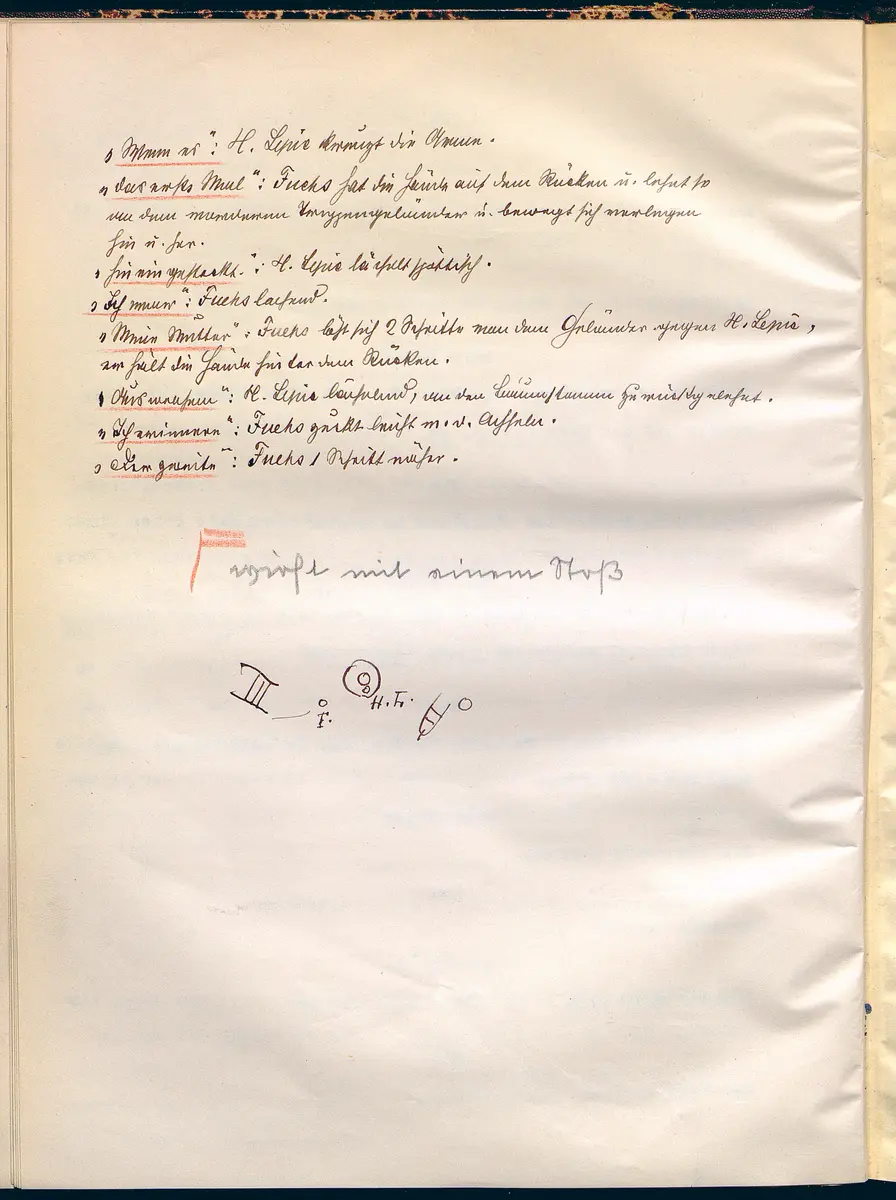 „Wenn er“: H. Lepic kreuzt die Arme.
„das erste Mal“: Fuchs hat die Hände auf dem Rücken u. lehnt so
an dem vorderen Treppengeländer u. bewegt sich verlegen
hin u. her.
„hineingesteckt.“: H. Lepic lächelt spöttisch.
„Ich war“: Fuchs lachend.
„Meine Mutter“: Fuchs löst sich 2 Schritte von dem Geländer gegen H. Lepic,
er hält die Hände hinter dem Rücken.
„Auswachsen“: H. Lepic lächelnd, an den Baumstamm zurückgelehnt.
„Ich erinnere“: Fuchs zuckt leicht m. d. Achseln.
„Der zweite“: Fuchs 1 Schritt näher.
wirft mit einem Stoß
H. Fr.
F.